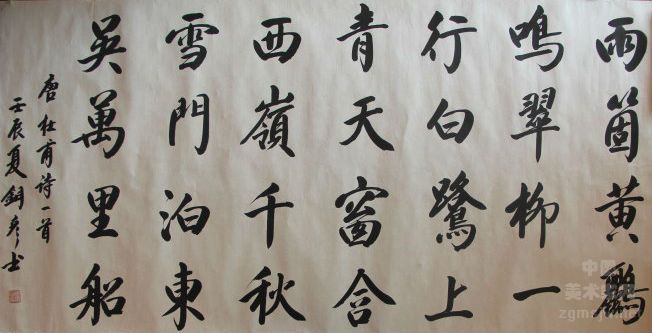 雨箇黃鸝
鳴翠柳一
行白鷺上
青天窗含
西嶺千秋
雪門泊東
吳萬里船
唐杜甫诗一首
壬辰夏 书
中国
美术
zgms